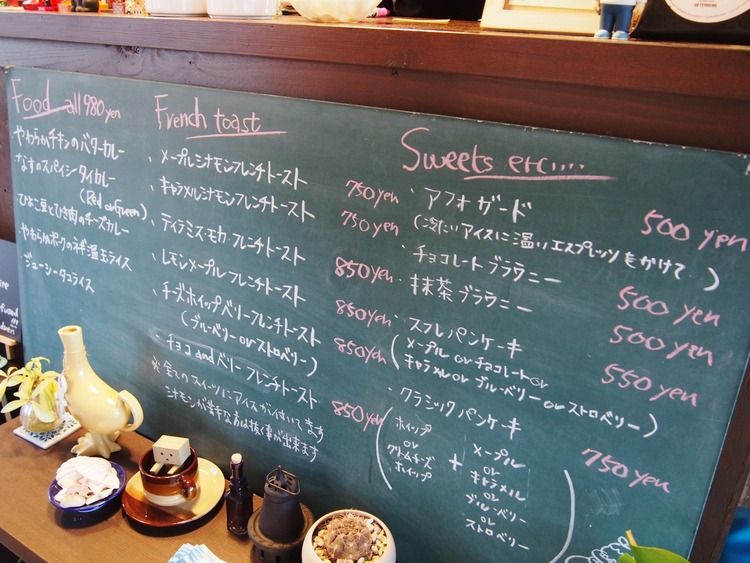 Food all 980 yen
やわらかチキンのバターカレー
なすのスパイシータイカレー
(Red or Green)
ひよこ豆とひき肉のチーズカレー
やわらかポークの 温玉ライス
ジューシータコライス
French toast
・メープルシナモンフレンチトースト 750 yen
・キャラメルシナモンフレンチトースト 750 yen
・ティラミス・モカ・フレンチトースト 850 yen
・レモンメープルフレンチトースト 850 yen
・チーズホイップベリーフレンチトースト 850 yen
(ブルーベリー or ストロベリー)
・チョコ and ベリーフレンチトースト 850 yen
※全てのスイーツにアイスが付いてきます
シナモンが苦手な方は抜く事が出来ます
Sweets etc....
・アフォガード 500 yen
(冷たいアイスに温いエスプレッソをかけて)
・チョコレートブラウニー 500 yen
・抹茶ブラウニー 500 yen
・スフレパンケーキ 550 yen
(メープル or チョコレート or
キャラメル or ブルーベリー or ストロベリー)
・クラシックパンケーキ 750 yen
ホイップ
or
クリームチーズ
ホイップ
+
メープル
or
キャラメル
or
ブルーベリー
or
ストロベリー